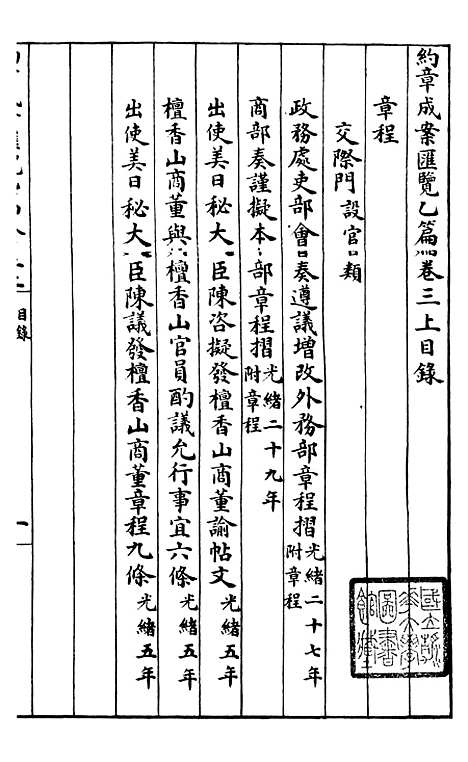 約章成案匯覽乙篇卷三上目錄
章程
交際門設官類
政務處吏部會奏遵議增改外務部章程摺光緒二十七年附章程
商部奏謹擬本部章程摺光緒二十九年附章程
出使美日秘大臣陳咨擬發檀香山商董諭帖文光緒五年
檀香山商董與檀香山官員酌議允行事宜六條光緒五年
出使美日秘大臣陳議發檀香山商董章程九條光緒五年
目錄
一